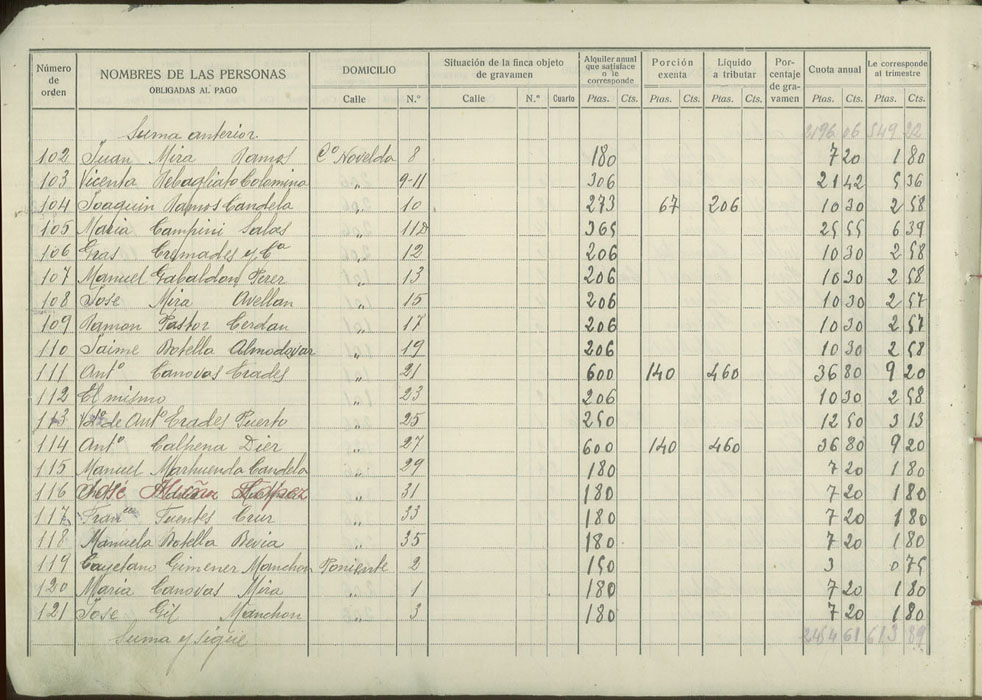 Número de orden NOMBRES DE LAS PERSONAS OBLIGADAS AL PAGO DOMICILIO Situación de la finca objeto de gravamen Alquiler anual que satisface o le corresponde Porción exenta Líquido a tributar Porcentaje de gravamen Cuota anual Le corresponde al trimestre
Calle N.º Calle N.º Cuarto Ptas. Cts. Ptas. Cts. Ptas. Cts. Ptas. Cts. Ptas. Cts.
Suma anterior 2196 06 549 32
102 Juan Mira Ramos Cº Novelda 8 180 7 20 1 80
103 Vicenta Rebagliato Colomina 9-11 306 21 42 5 36
104 Joaquin Ramos Candela " 10 273 67 206 10 30 2 58
105 Maria Campini Salas " 11 365 25 55 6 39
106 Gras Cremades y Cª " 12 206 10 30 2 58
107 Manuel Gabaldon Perez " 13 206 10 30 2 58
108 Jose Mira Avellan " 15 206 10 30 2 57
109 Ramon Pastor Cerdan " 17 206 10 30 2 57
110 Jaime Botella Almodovar " 19 206 10 30 2 58
111 Antº Canovas Erades " 21 600 140 460 36 80 9 20
112 El mismo " 23 206 10 30 2 58
113 Vda de Antº Erades Puerto " 25 250 12 50 3 13
114 Antº Calpena Dier " 27 600 140 460 36 80 9 20
115 Manuel Marhuenda Candela " 29 180 7 20 1 80
116 José " 31 180 7 20 1 80
117 Franco Fuentes Cruz " 33 180 7 20 1 80
118 Manuela Botella Bevia " 35 180 7 20 1 80
119 Cayetano Gimener Manchon Poniente 2 150 3 0 75
120 Maria Canovas Mira " 1 180 7 20 1 80
121 Jose Gil Manchon " 3 180 7 20 1 80
Suma y sigue 613 89